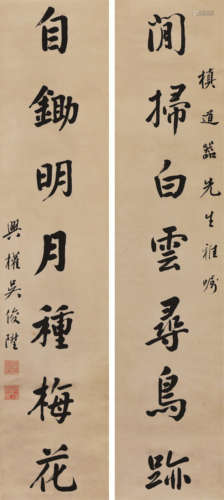 楨道器先生雅囑
閒掃白雲尋鳥跡
自鋤明月種梅花
興權吳俊陞